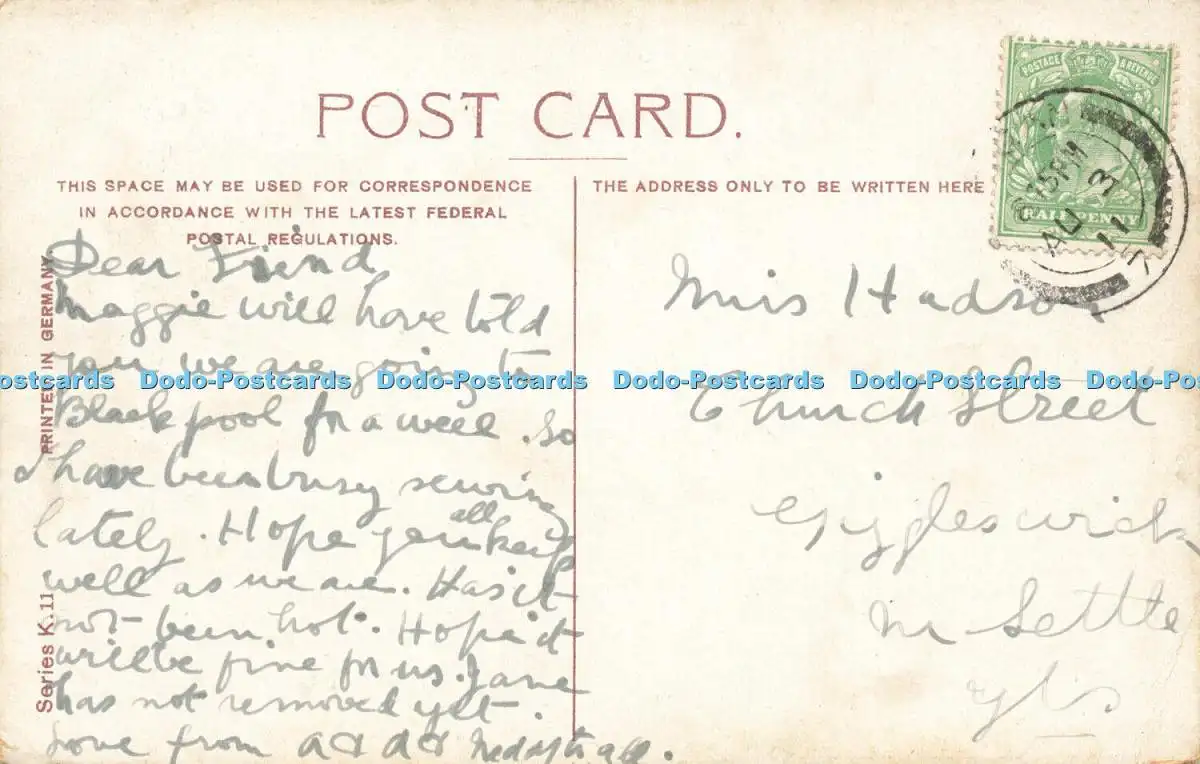 POST CARD.
THIS SPACE MAY BE USED FOR CORRESPONDENCE
IN ACCORDANCE WITH THE LATEST FEDERAL
POSTAL REGULATIONS.
THE ADDRESS ONLY TO BE WRITTEN HERE
POSTAGE & REVENUE
HALF PENNY
AU 3
11
PRINTED IN GERMANY
Series K.11
Dear Friend
Maggie will have told
you we are going to
Blackpool for a week. So
I have been busy sewing
lately. Hope you all keep
well as we are. Has it
not been hot. Hope it
will be fine for us. Jane
has not removed yet.
Love from all
Miss Hudson
Church Street
Giggleswick
Nr Settle
Yks
Dodo-Postcards Dodo-Postcards Dodo-Postcards Dodo-Postcards Dodo-Postcards